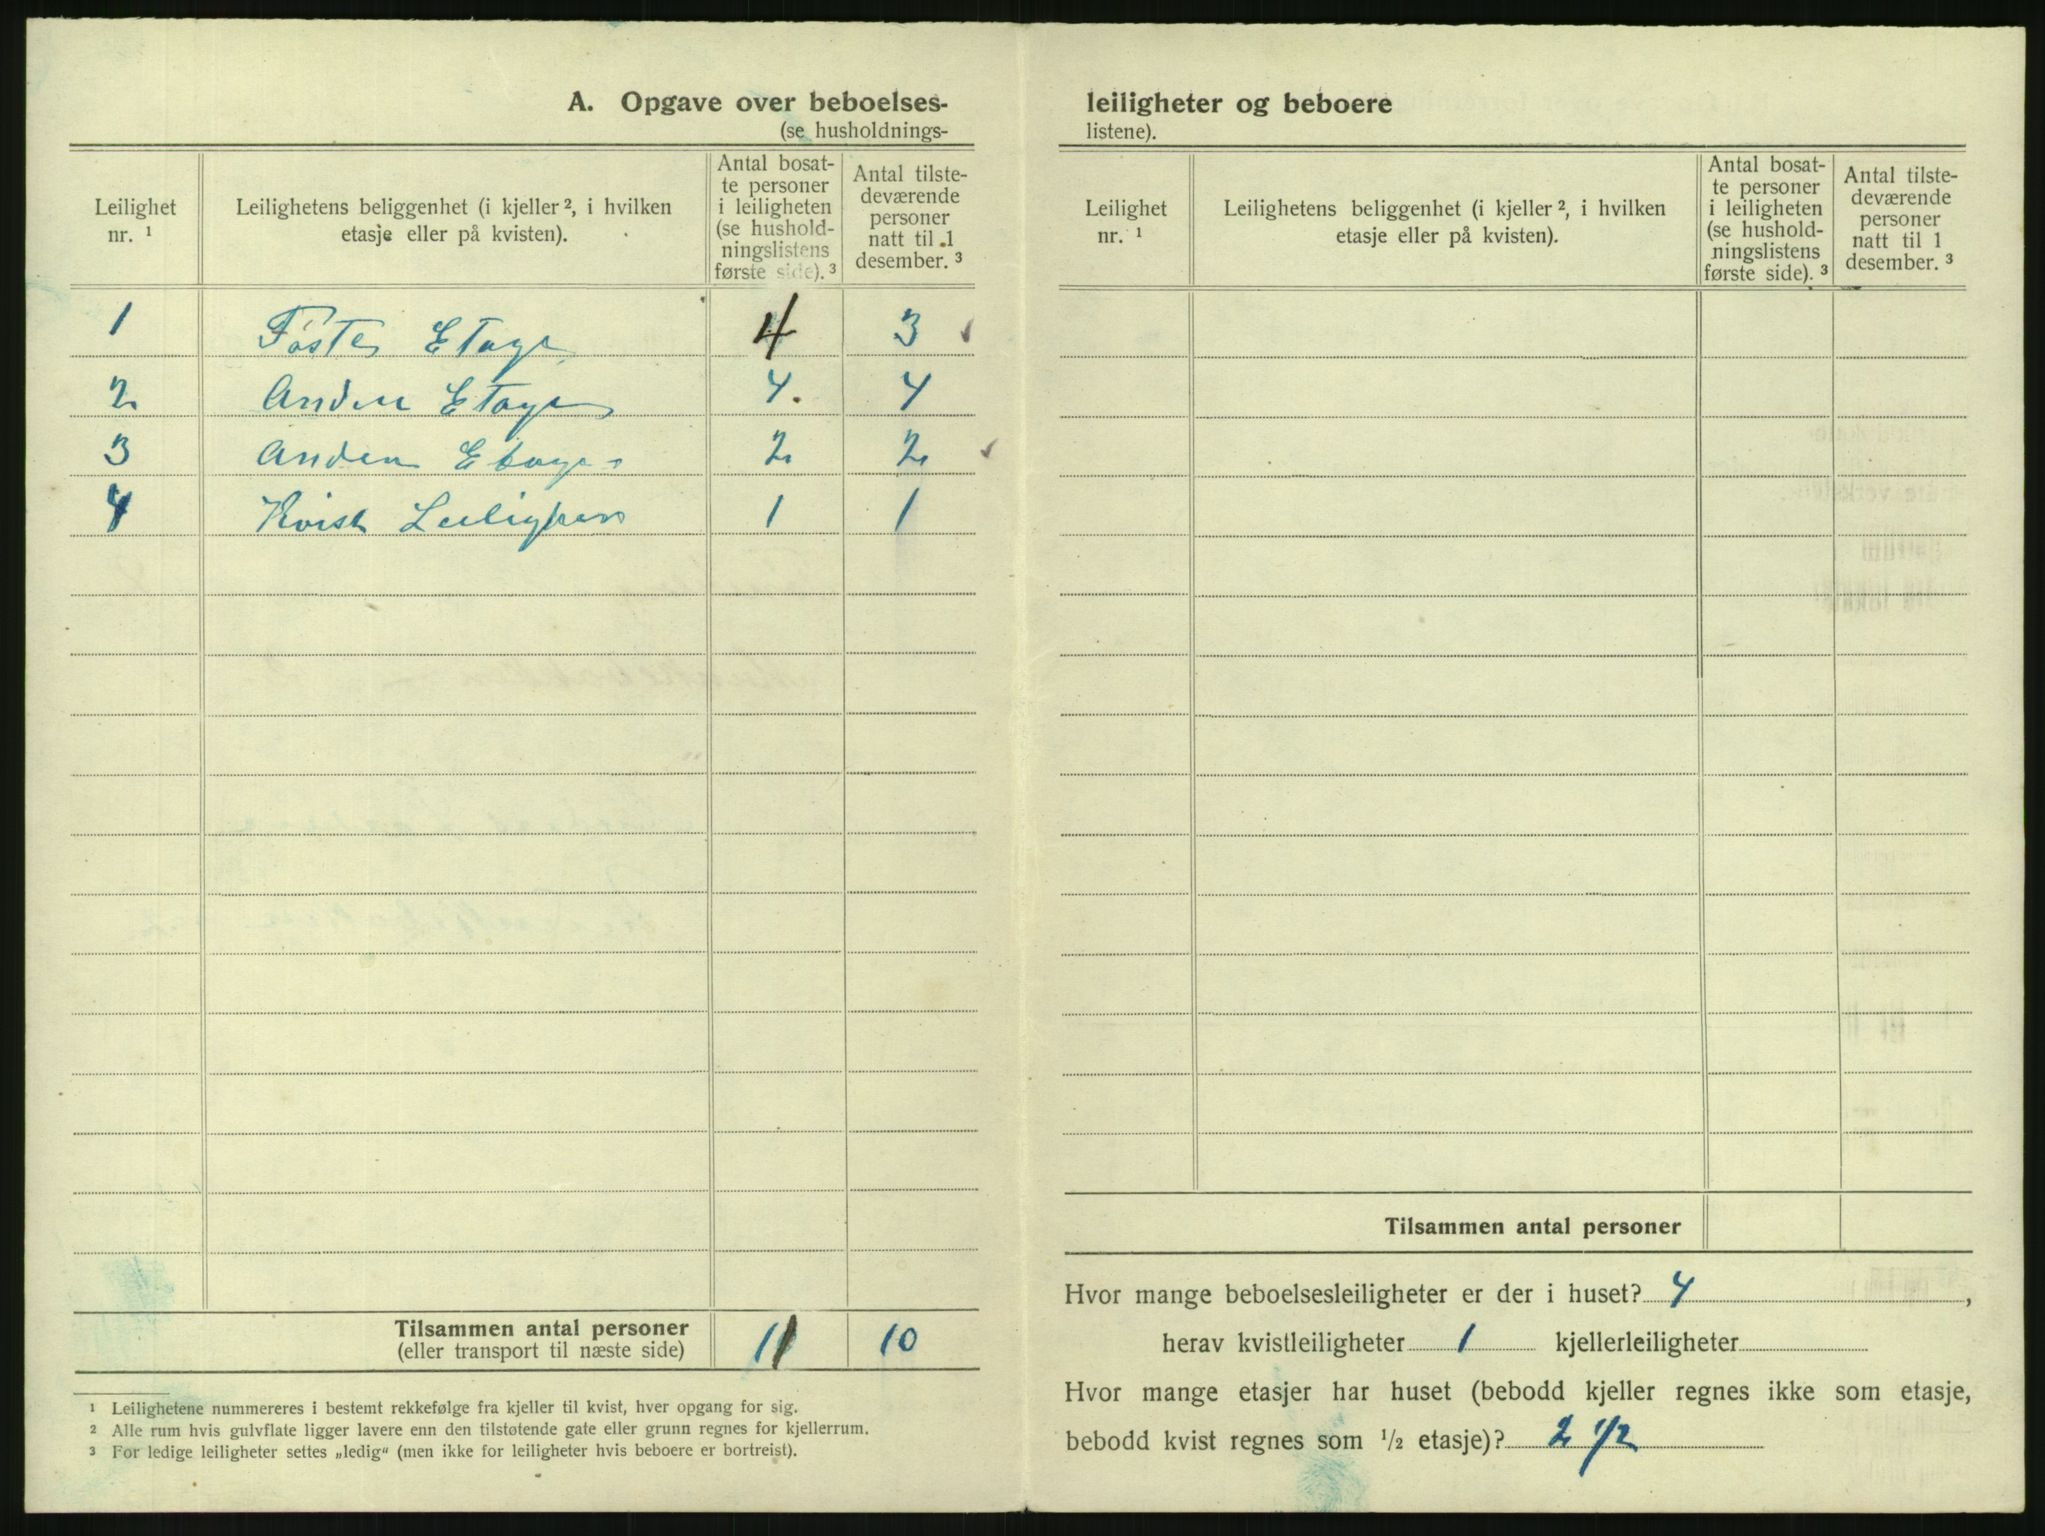 A. Opgave over beboelses-
(se husholdnings-
Leilighet nr. 1
Leilighetens beliggenhet (i kjeller 2, i hvilken etasje eller på kvisten).
Antal bosat-
te personer
i leiligheten
(se hushold-
ningslistens
første side). 3
Antal tilste-
deværende
personer
natt til 1
desember. 3
1 Føste Etage 4 3
2 Anden Etage 4. 4
3 Anden Etage 2 2
4 Kvist 1 1
Tilsammen antal personer 11 10
(eller transport til næste side)
1 Leilighetene nummereres i bestemt rekkefølge fra kjeller til kvist, hver opgang for sig.
2 Alle rum hvis gulvflate ligger lavere enn den tilstøtende gate eller grunn regnes for kjellerrum.
3 For ledige leiligheter settes „ledig“ (men ikke for leiligheter hvis beboere er bortreist).
leiligheter og beboere
listene).
Leilighet nr. 1
Leilighetens beliggenhet (i kjeller 2, i hvilken etasje eller på kvisten).
Antal bosat-
te personer
i leiligheten
(se hushold-
ningslistens
første side). 3
Antal tilste-
deværende
personer
natt til 1
desember. 3
Tilsammen antal personer
Hvor mange beboelsesleiligheter er der i huset? 4 ,
herav kvistleiligheter 1 kjellerleiligheter
Hvor mange etasjer har huset (bebodd kjeller regnes ikke som etasje,
bebodd kvist regnes som 1/2 etasje)? 2 1/2